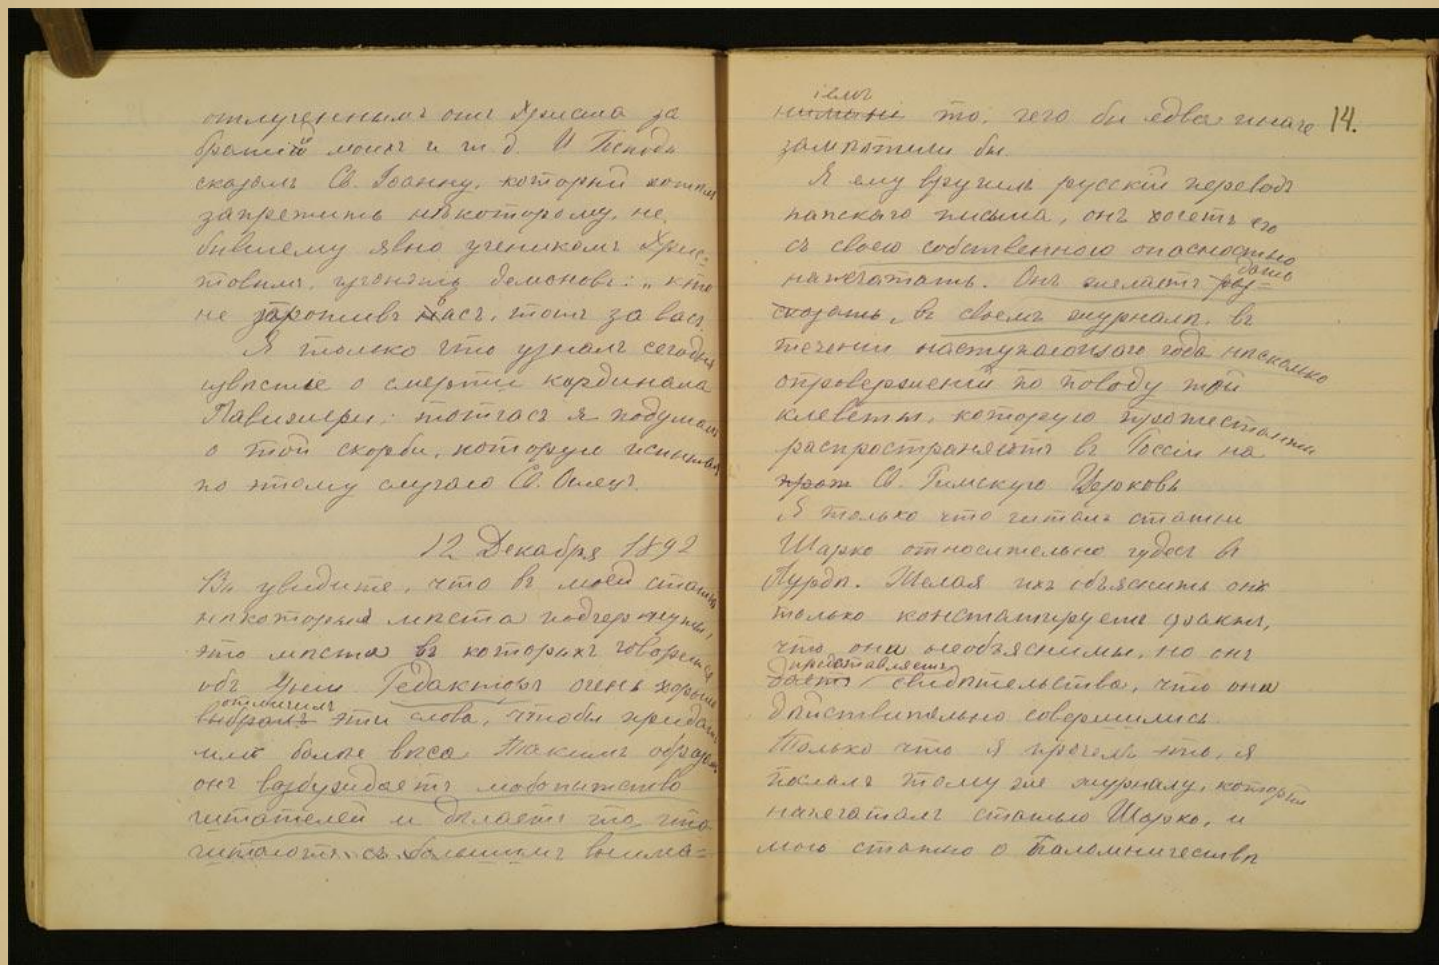 отлученнымъ отъ Христа за
братій моихъ и т. д. И Господь
сказалъ Св. Іоанну, который хотѣлъ
запретить нѣкоторому, не
бывшему явно ученикомъ Хрис-
товымъ, изгонять демоновъ: „кто
не противъ васъ, тотъ за васъ.
Я только что узналъ сегодня
извѣстіе о смерти кардинала
Лавижери; тотчасъ я подумалъ
о той скорби, которую испыталъ
по этому случаю Св. Отецъ.
12 Декабря 1892
Вы увидите, что въ моей статьѣ
нѣкоторыя мѣста подчеркнуты,
это мѣста въ которыхъ говорится
объ Уніи. Редакторъ очень хорошо
отличилъ
выбралъ эти слова, чтобы придать
имъ болѣе вѣса. Такимъ образомъ
онъ возбуждаетъ любопытство
читателей и дѣлаетъ то, что
читаютъ съ большимъ внима-
іемъ
то, чего бы едва иначе 14.
замѣтили бы.
Я ему вручилъ русскій переводъ
папскаго письма, онъ хочетъ его
съ своею собственною опасностью
напечатать. Онъ желаетъ раз-
дать
сказать, въ своемъ журналѣ, въ
теченіи наступающаго года нѣсколько
опроверженій по поводу той
клеветы, которую протестанты
распространяютъ въ Россіи на
прот Св. Римскую Церковь
Я только что читалъ статьи
Шарко относительно чудесъ въ
Лурдѣ. Желая ихъ объяснить онъ
только констатируетъ факты,
что они необъяснимы, но онъ
представляетъ
даетъ свидѣтельства, что они
дѣйствительно совершились.
Только что я прочелъ это, я
послалъ тому же журналу, который
напечаталъ статью Шарко, и
мою статью о Паломничествѣ